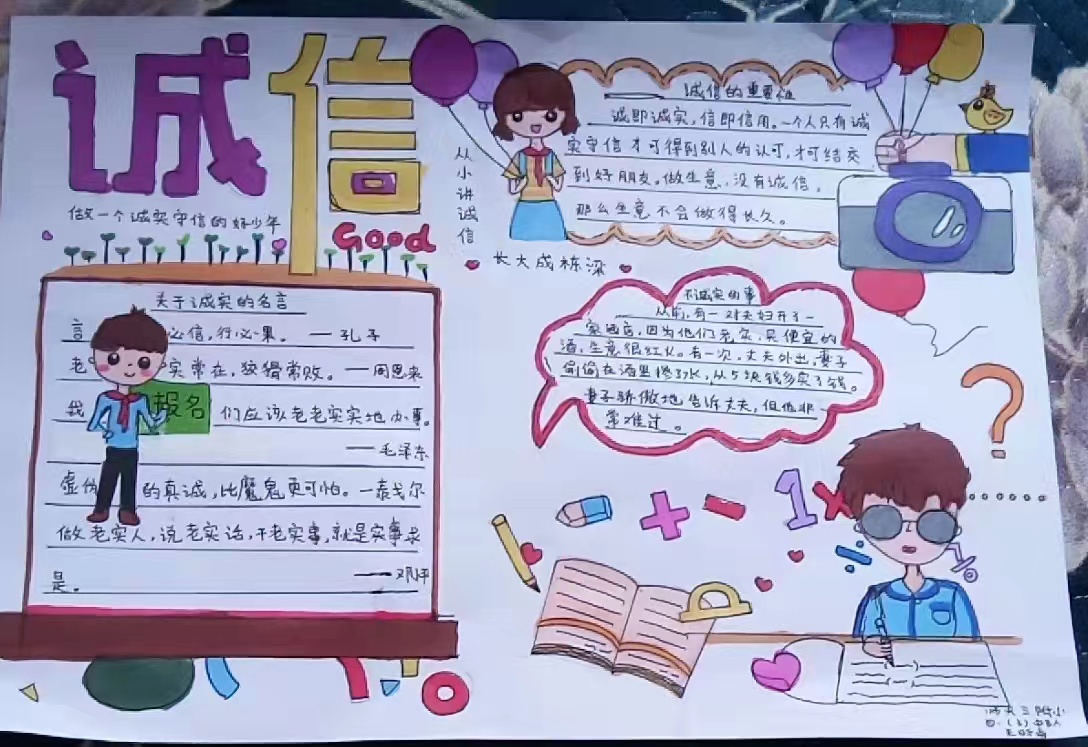 诚信
做一个诚实守信的好少年
Good
从小讲诚信
长大成栋梁
关于诚实的名言
言 必信,行必果。 —孔子
老 实常在,狡猾常败。—周恩来
我 们应该老老实实地办事。
—毛泽东
虚伪 的真诚,比魔鬼更可怕。—泰戈尔
做老实人,说老实话,干老实事,就是实事求
是。 —邓
报名
诚信的重要性
诚即诚实,信即信用。一个人只有诚
实守信才可得到别人的认可,才可结交
到好朋友。做生意,没有诚信,
那么生意不会做得长久。
不诚实的事
从前,有一对夫妇开了一
家酒店,因为他们老实,买便宜的
酒,生意很红火。有一次,丈夫外出,妻子
偷偷在酒里掺了水,从5块钱多卖了钱。
妻子骄傲地告诉丈夫,但他非
常难过。
? + - 1 × ÷
师大三附小